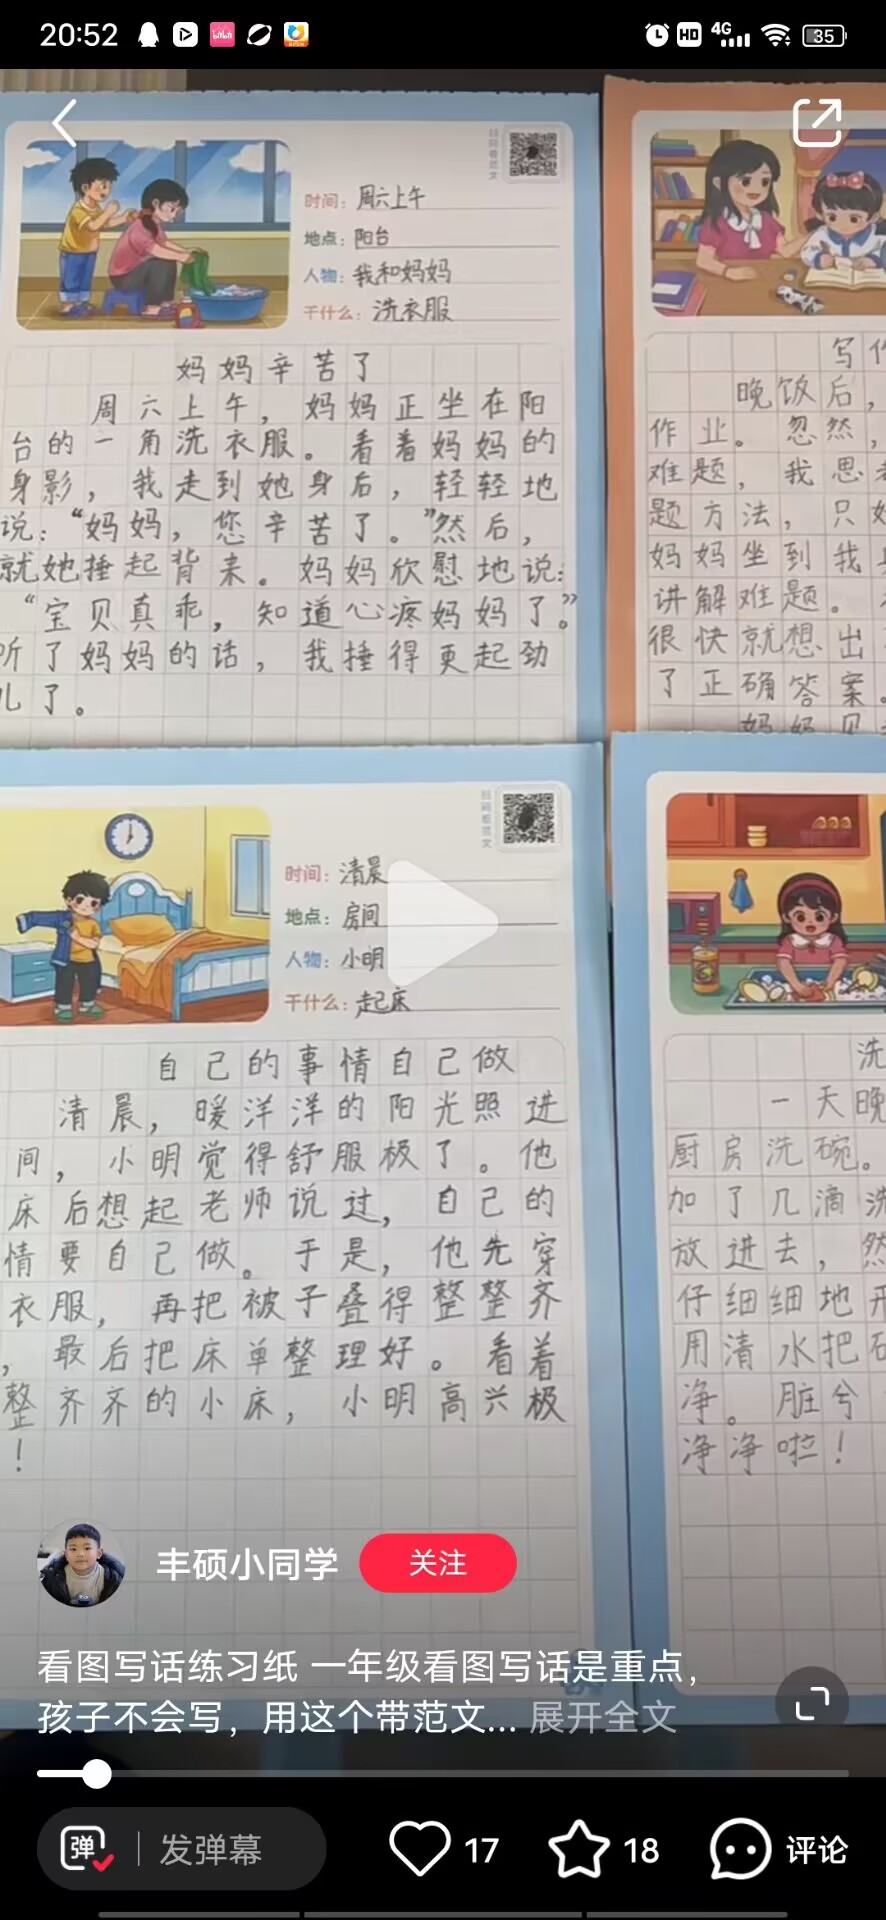 20:52
4G
HD
35
扫码看范文
时间：周六上午
地点：阳台
人物：我和妈妈
干什么：洗衣服
妈妈辛苦了
周六上午，妈妈正坐在阳
台的一角洗衣服。看着妈妈的
身影，我走到她身后，轻轻地
说：“妈妈，您辛苦了。”然后，
就她捶起背来。妈妈欣慰地说：
“宝贝真乖，知道心疼妈妈了。”
听了妈妈的话，我捶得更起劲
儿了。
写作
晚饭后，
作业。忽然，
难题，我思考
题方法，只好
妈妈坐到我
讲解难题。
很快就想出
了正确答案。
妈妈见
扫码看范文
时间：清晨
地点：房间
人物：小明
干什么：起床
自己的事情自己做
清晨，暖洋洋的阳光照进
间，小明觉得舒服极了。他
床后想起老师说过，自己的
情要自己做。于是，他先穿
衣服，再把被子叠得整整齐
，最后把床单整理好。看着
整齐齐的小床，小明高兴极
！
洗
一天晚
厨房洗碗。
加了几滴洗
放进去，然
仔细细地开
用清水把
净。脏兮
净净啦！
丰硕小同学
关注
看图写话练习纸 一年级看图写话是重点，
孩子不会写，用这个带范文... 展开全文
弹
发弹幕
17
18
评论